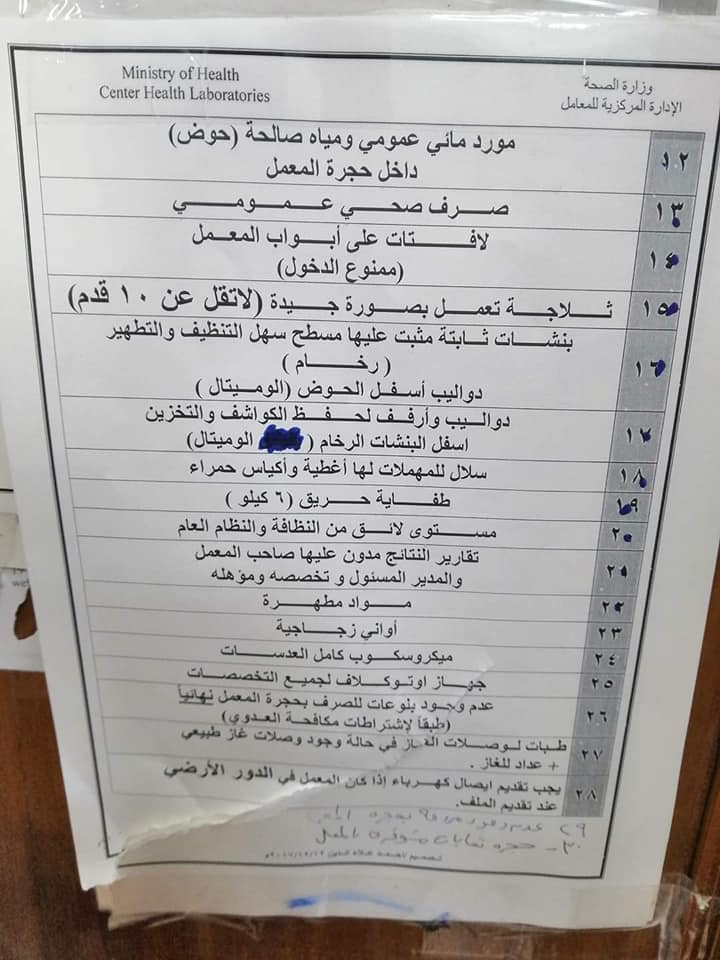 Ministry of Health
Center Health Laboratories
وزارة الصحة
الإدارة المركزية للمعامل
١٢ مورد مائي عمومي ومياه صالحة (حوض)
داخل حجرة المعمل
١٣ صرف صحي عمومي
١٤ لافتات على أبواب المعمل
(ممنوع الدخول)
١٥ ثلاجة تعمل بصورة جيدة (لاتقل عن ١٠ قدم)
١٦ بنشات ثابتة مثبت عليها مسطح سهل التنظيف والتطهير
( رخام )
دواليب أسفل الحوض (الوميتال )
١٧ دواليب وأرفف لحفظ الكواشف والتخزين
اسفل البنشات الرخام ( الوميتال)
١٨ سلال للمهملات لها أغطية وأكياس حمراء
١٩ طفاية حريق (٦ كيلو )
٢٠ مستوى لائق من النظافة والنظام العام
٢١ تقارير النتائج مدون عليها صاحب المعمل
والمدير المسئول و تخصصه ومؤهله
٢٢ مواد مطهرة
٢٣ أواني زجاجية
٢٤ ميكروسكوب كامل العدسات
٢٥ جهاز اوتوكلاف لجميع التخصصات
٢٦ عدم وجود بلوعات للصرف بحجرة المعمل نهائياً
(طبقاً لإشتراطات مكافحة العدوي)
٢٧ طبات لوصلات الغاز في حالة وجود وصلات غاز طبيعي
+ عداد للغاز .
٢٨ يجب تقديم ايصال كهرباء إذا كان المعمل في الدور الأرضي
عند تقديم الملف.
٢٩ عدم وجود
٣٠- حجرة نفايات